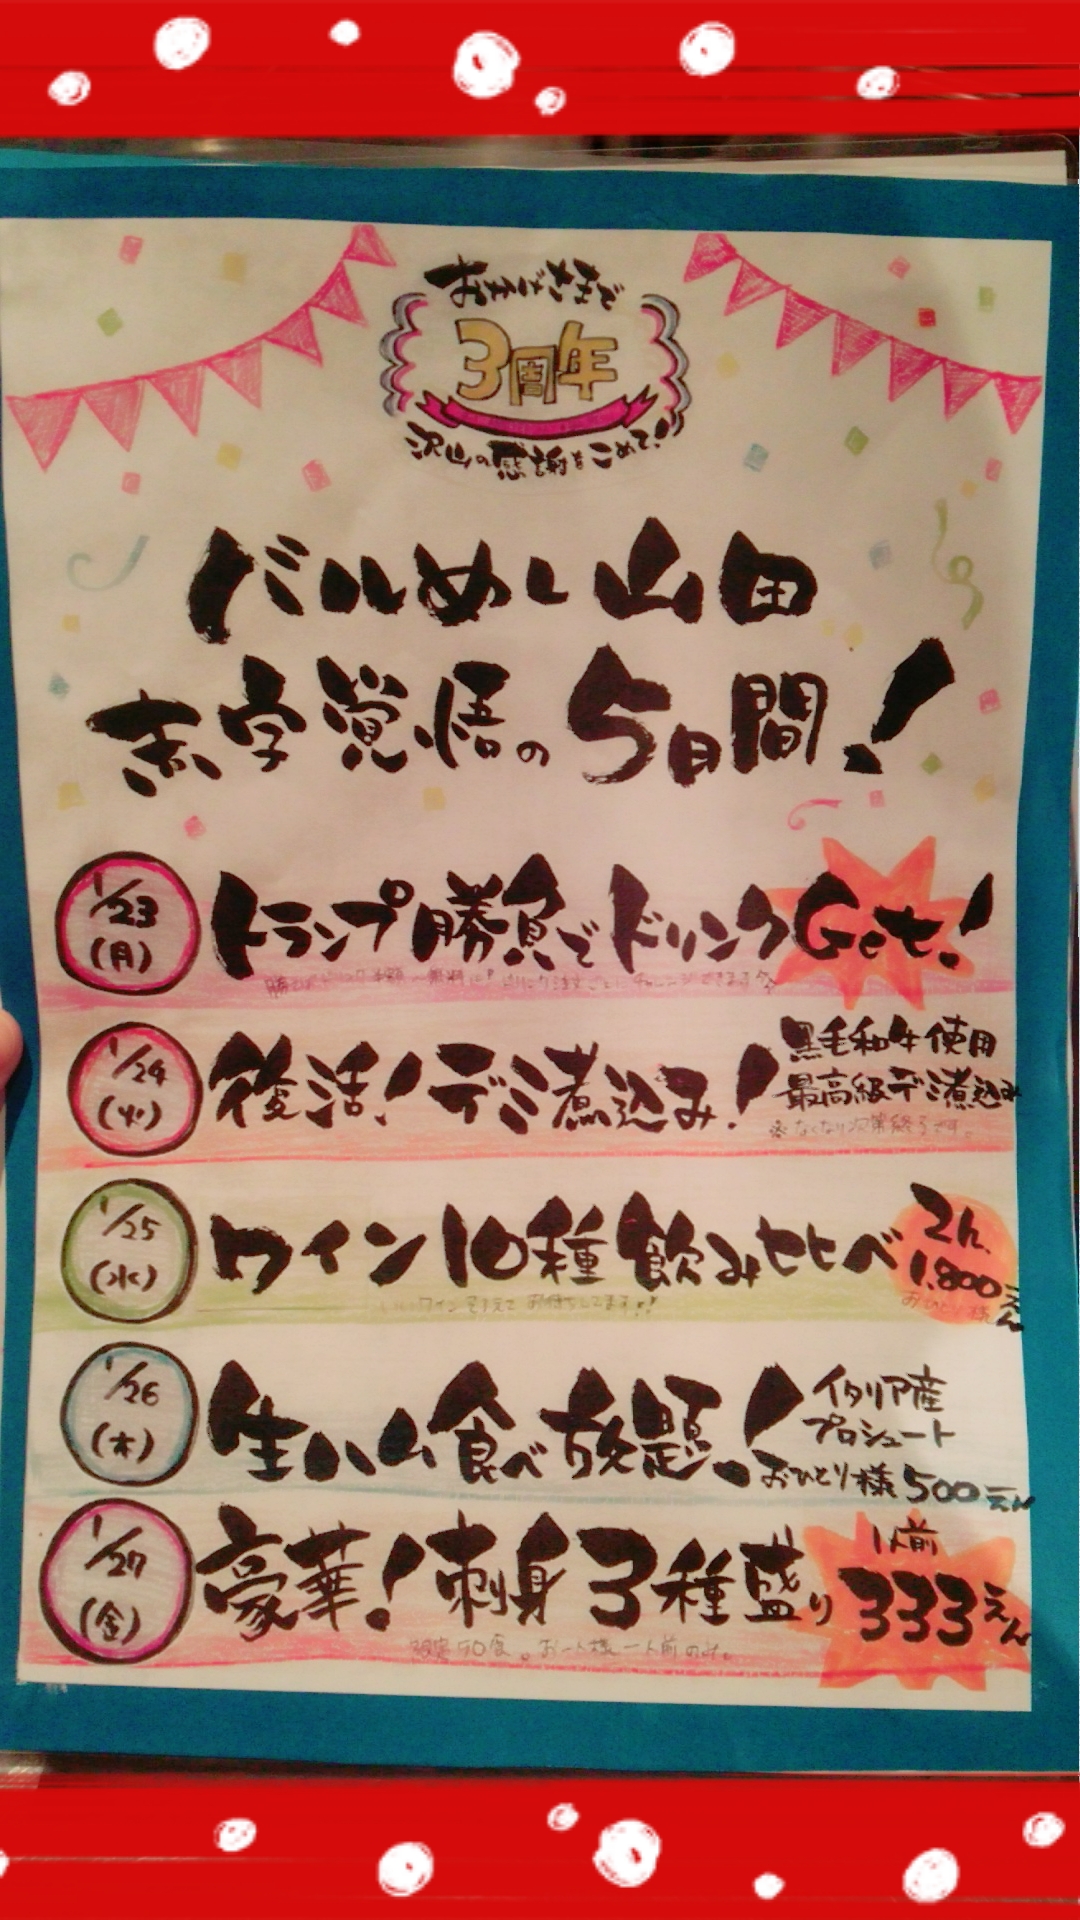 おかげさまで
3周年
沢山の感謝をこめて!!
バルめし山田
赤字覚悟の5日間!
1/23
(月)
トランプ勝負でドリンクGet!
1/24
(火)
復活!デミ煮込み!
黒毛和牛使用
最高級デミ煮込み
※なくなり次第終了です。
1/25
(水)
ワイン10種飲み比べ
2h
1.800えん
おひとり様
ワイン
お待ちしてます!!
1/26
(木)
生ハム食べ放題!
イタリア産
プロシュート
おひとり様500えん
1/27
(金)
豪華!刺身3種盛り
1人前
333えん
限定50食。お一人様一人前のみ。